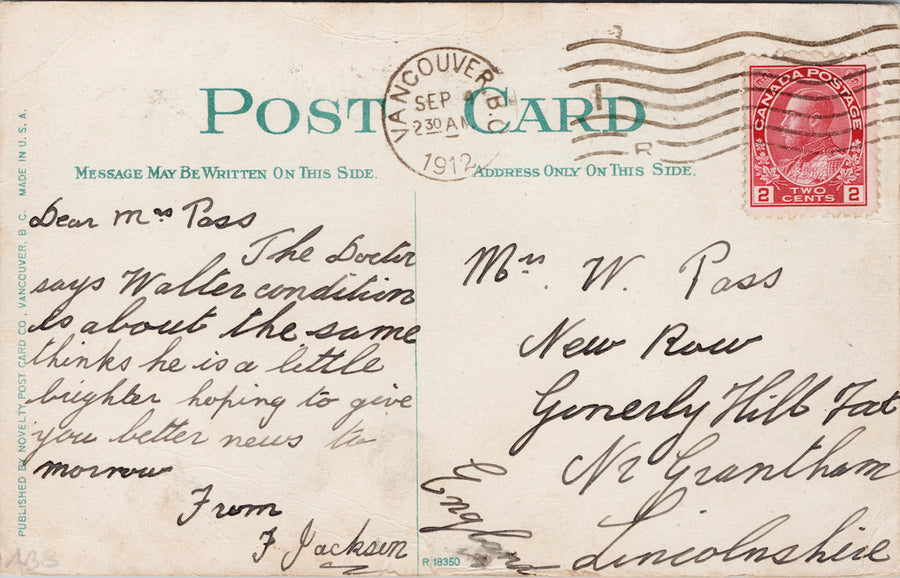 POST CARD
VANCOUVER, B.C.
SEP
2 30 AM
1912
R
CANADA POSTAGE
2 TWO CENTS 2
MESSAGE MAY BE WRITTEN ON THIS SIDE.
ADDRESS ONLY ON THIS SIDE.
Dear Mrs Pass
The Doctor
says Walter condition
is about the same
thinks he is a little
brighter hoping to give
you better news to
morrow
From
F Jackson
Mrs. W. Pass
New Row
Gonerly Hill Fat
Nr Grantham
Lincolnshire
England
PUBLISHED BY NOVELTY POST CARD CO., VANCOUVER, B. C. MADE IN U. S. A.
R 18350
ABS